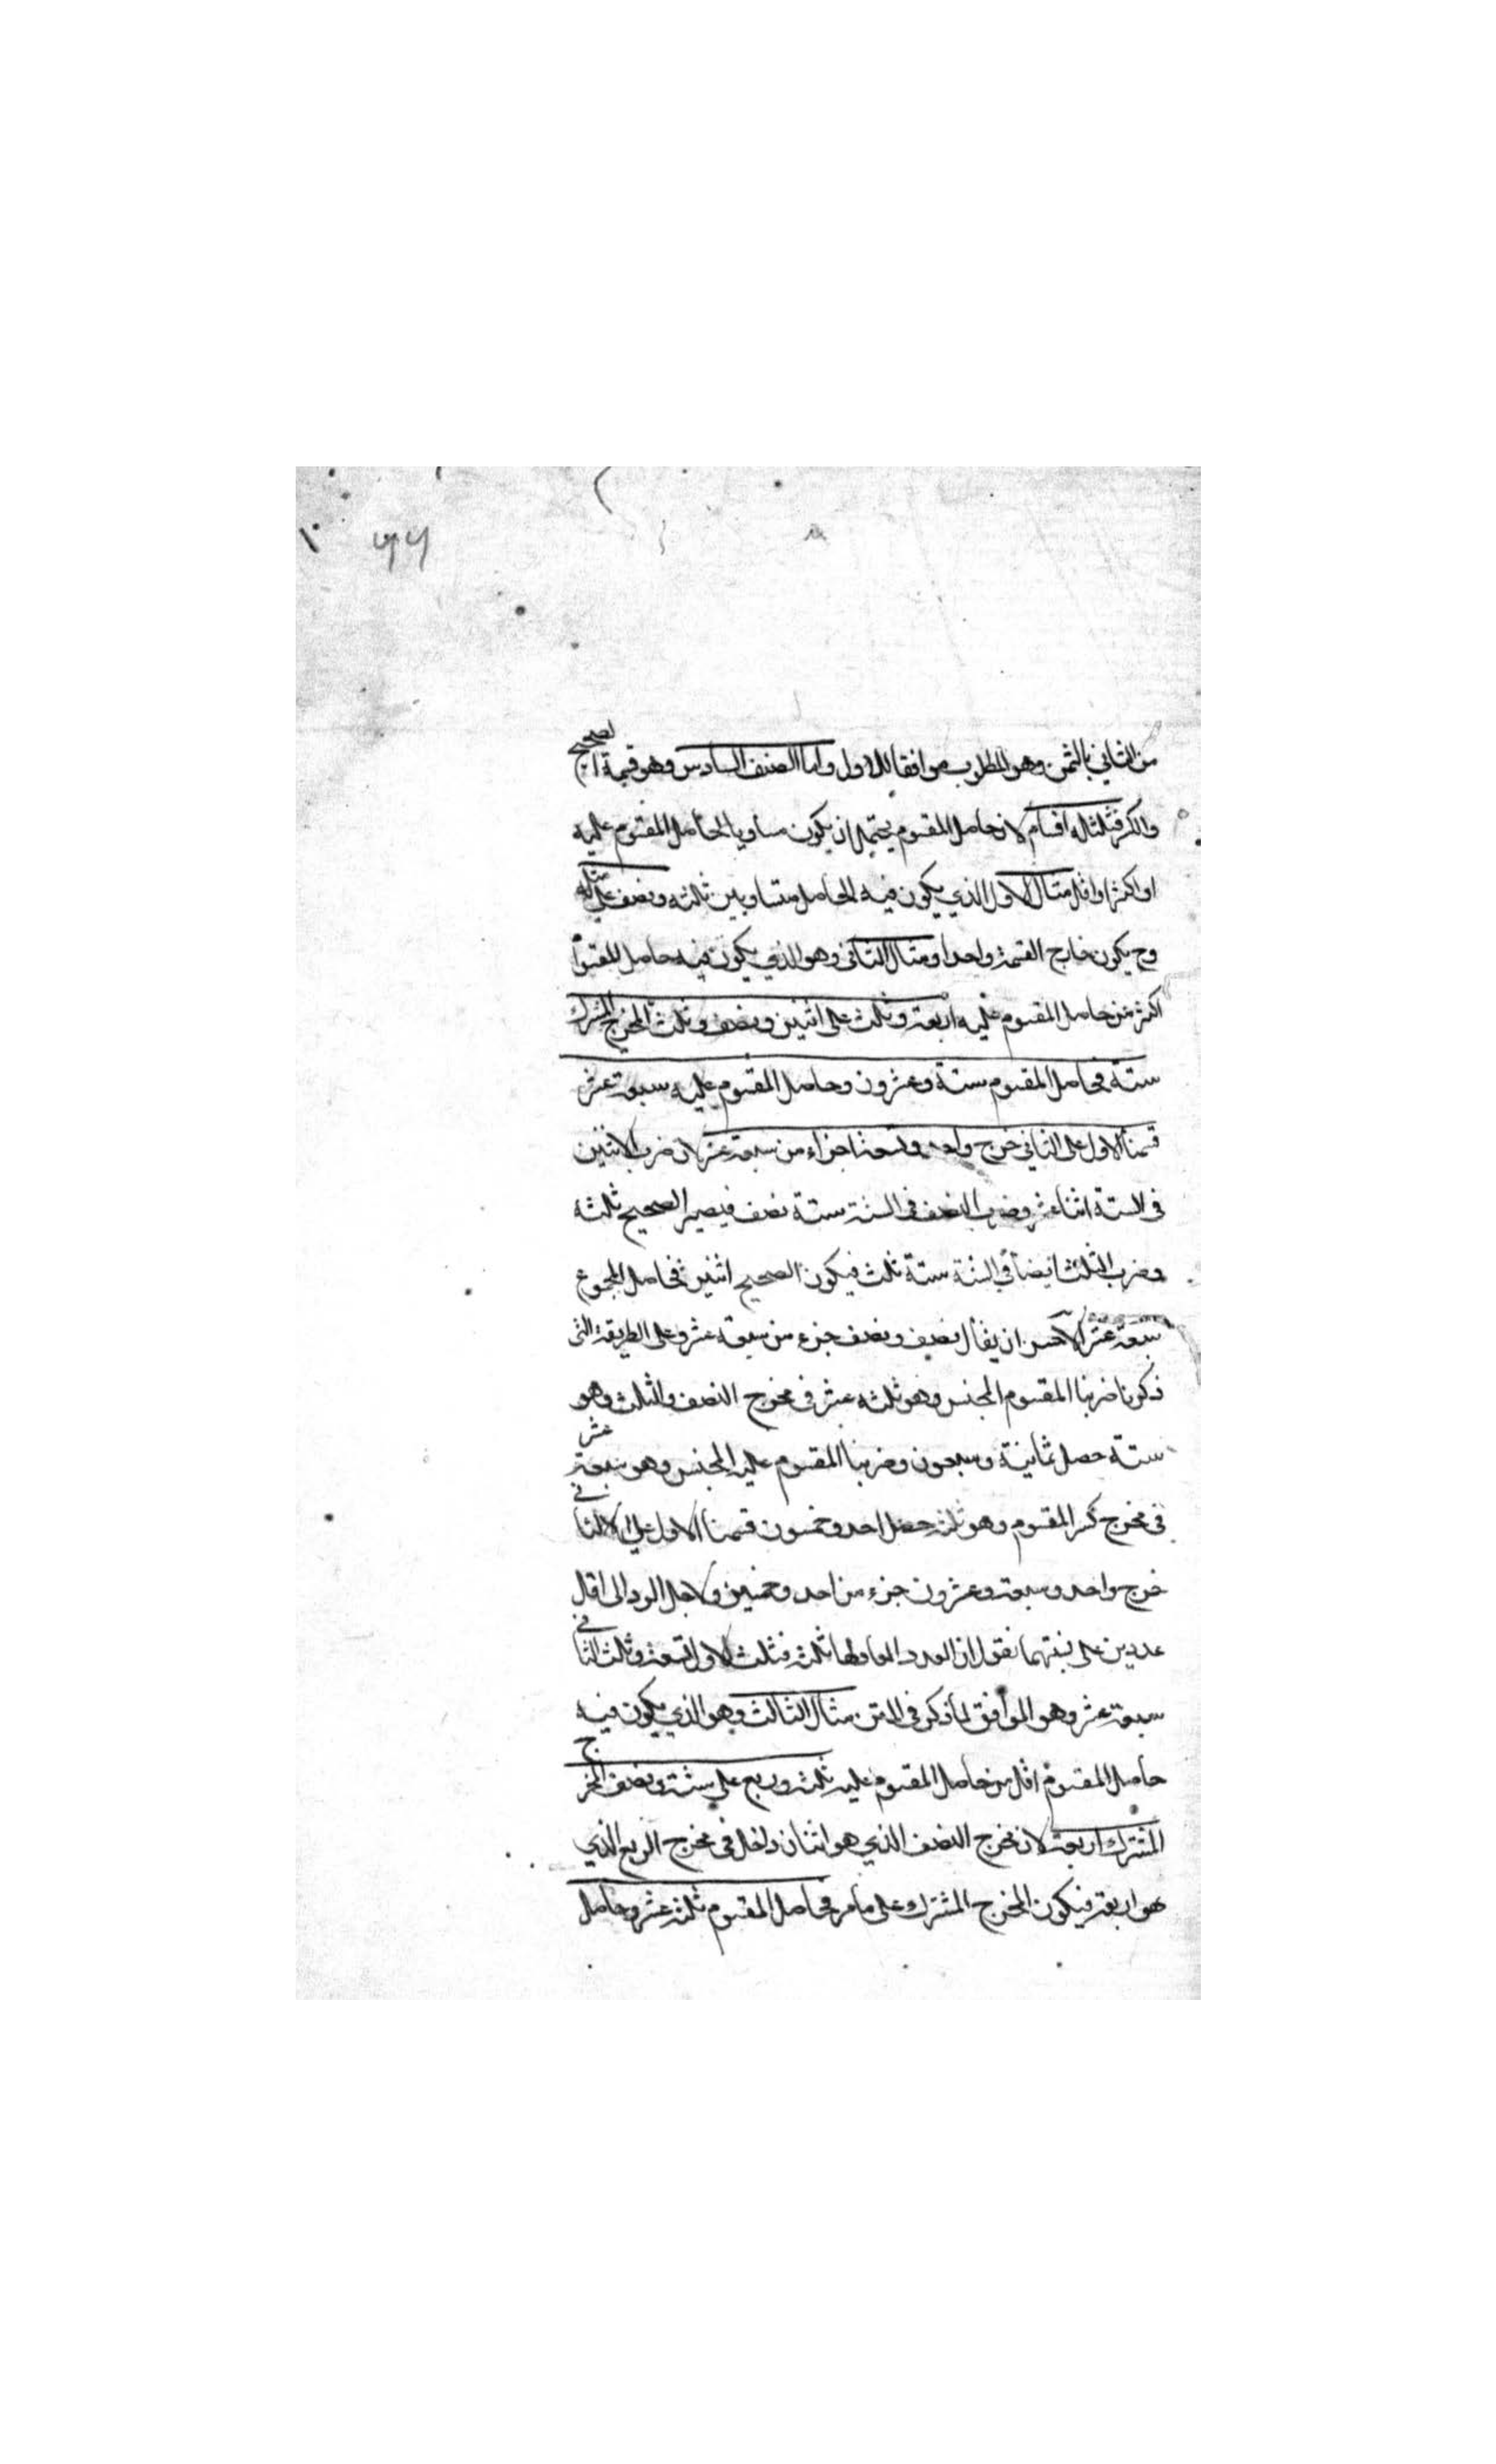 من الثاني بالثمن وهو المطلوب موافقا للاول واما الصنف السادس وهو قسمة الصحيح
والكسر فثلثاله اقسام لان حاصل المقسوم يحتمل ان يكون مساويا لحاصل المقسوم عليه
او اكثر او اقل مثال الاول الذي يكون فيه الحاصل متساويين ثلثة ونصف على مثله
وح يكون خارج القسمة واحدا ومثال الثاني وهو الذي يكون فيه حاصل المقسوم
اكثر من حاصل المقسوم عليه اربعة وثلث على اثنين ونصف وثلث المخرج المشترك
ستة فحاصل المقسوم ستة وعشرون وحاصل المقسوم عليه سبعة عشر
قسمنا الاول على الثاني خرج واحد وتسعة اجزاء من سبعة عشر لان ضرب الاثنين
في الستة اثنا عشر وضرب النصف في الستة ستة نصف فيصير الصحيح ثلثة
وضرب الثلث ايضا في الستة ستة ثلث فيكون الصحيح اثنين فحاصل المجموع
سبعة عشر الاحسن ان يقال نصف ونصف جزء من سبعة عشر وعلى الطريقة التي
ذكرنا ضربنا المقسوم المجنس وهو ثلثة عشر في مخرج النصف والثلث وهو
ستة حصل ثمانية وسبعون وضربنا المقسوم عليه المجنس وهو سبعة عشر
في مخرج كسر المقسوم وهو ثلثة حصل احد وخمسون قسمنا الاول على الثاني
خرج واحد وسبعة وعشرون جزء من احد وخمسين ولاجل الرد الى اقل
عددين على نسبتهما نقول ان العدد العاد لها ثلثة فثلث الاول تسعة وثلث الثاني
سبعة عشر وهو الموافق لما ذكر في المتن مثال الثالث وهو الذي يكون فيه
حاصل المقسوم اقل من حاصل المقسوم عليه ثلثة وربع على ستة ونصف المخرج
المشترك اربعة لان مخرج النصف الذي هو اثنان داخل في مخرج الربع الذي
هو اربعة فيكون المخرج المشترك على ما مر فحاصل المقسوم ثلثة عشر وحاصل